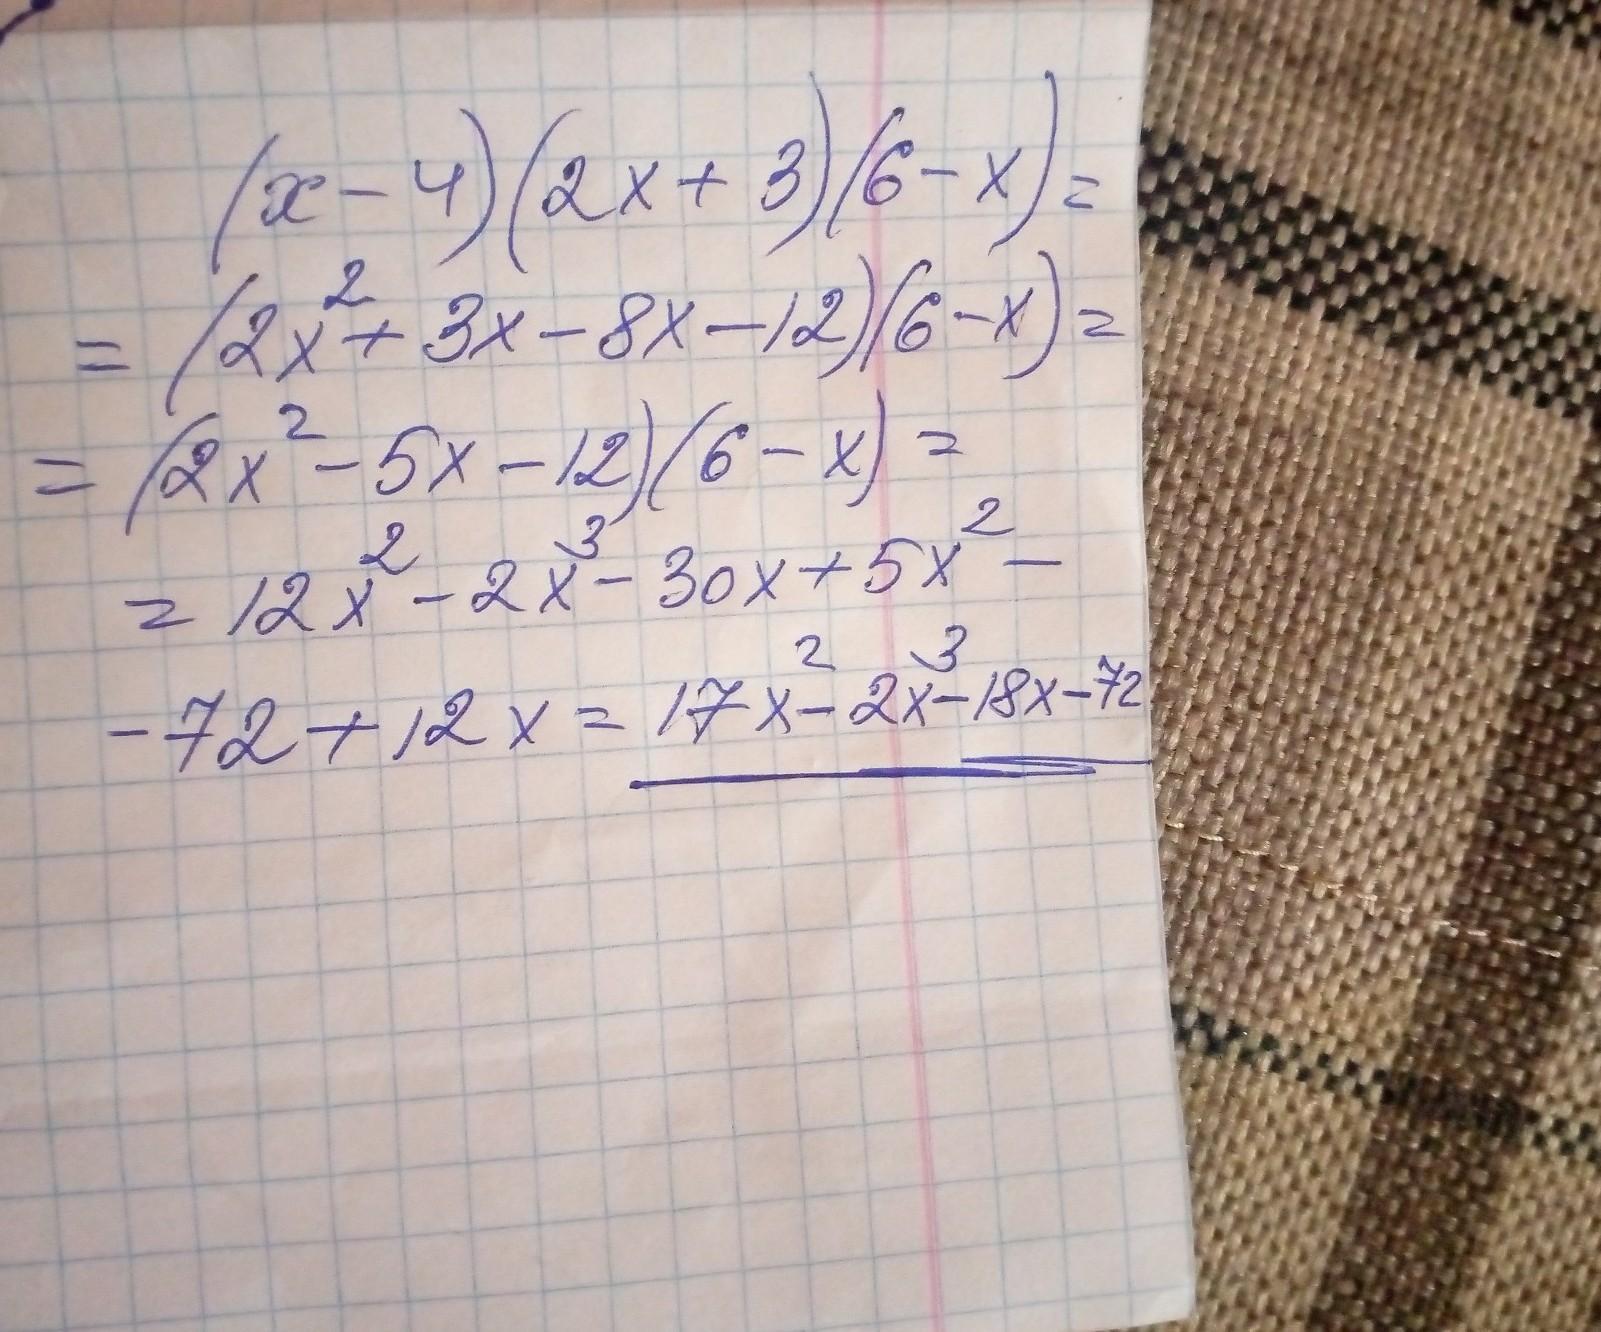 (x - 4)(2x + 3)(6 - x) =
= (2x² + 3x - 8x - 12)(6 - x) =
= (2x² - 5x - 12)(6 - x) =
= 12x² - 2x³ - 30x + 5x² -
- 72 + 12x = 17x² - 2x³ - 18x - 72